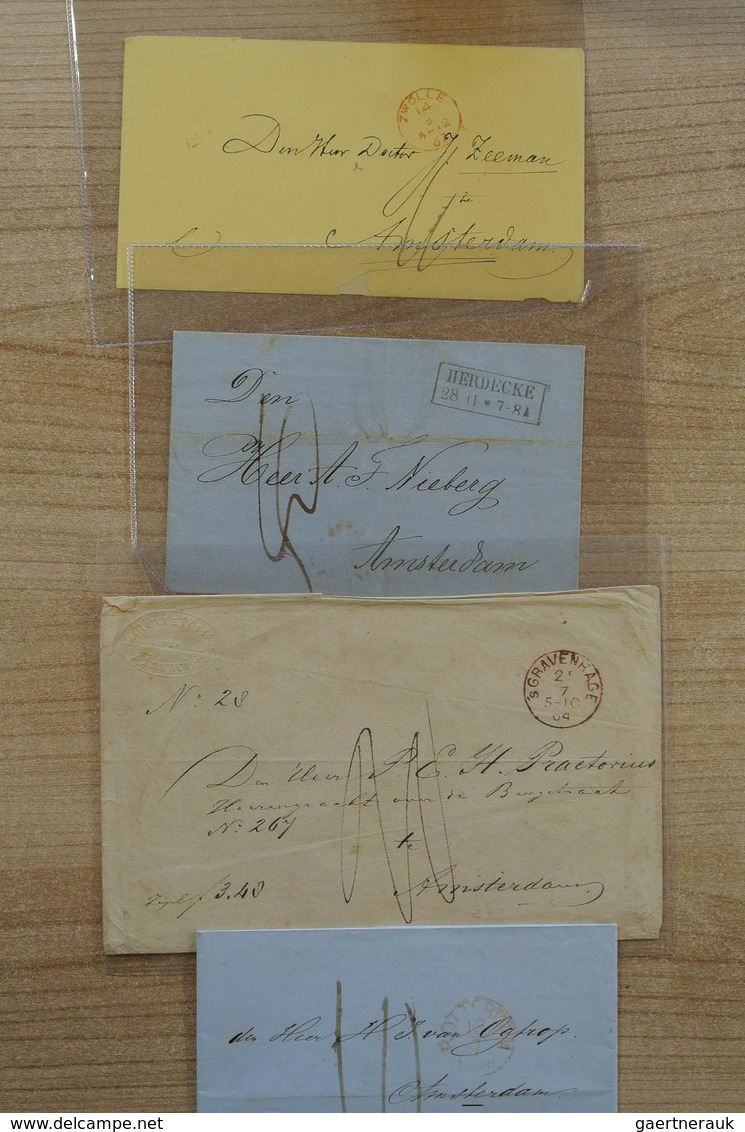 ZWOLLE
14
8
4-12
Den Heer Doctor J Zeeman
te
Amsterdam.
HERDECKE
28 11 * 7-8 A
Den
Heer A. F. Nieberg
Amsterdam
'sGRAVENHAGE
7
5-10
64
No. 28
Den Heer P. E. H. Praetorius
Heerengracht over de Bergstraat
No. 267
te
Amsterdam
3.48
ROTTERDAM
den Heer H J. van Ogtrop.
Amsterdam
gaertnerauk